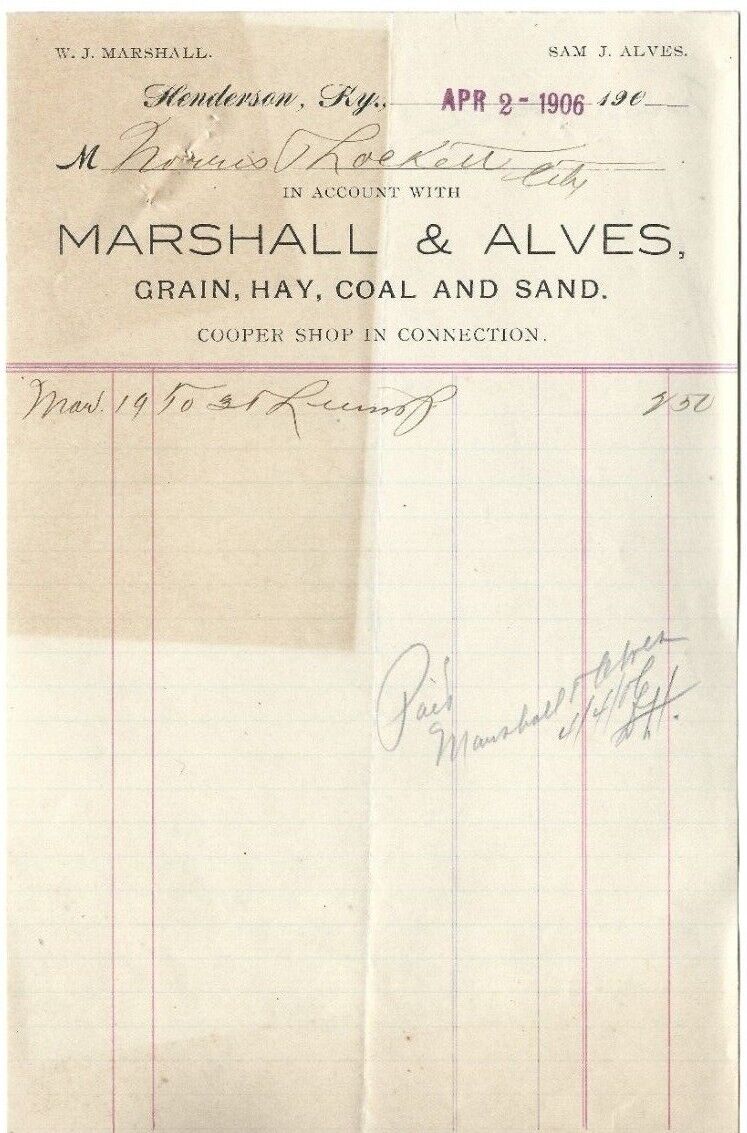 W. J. MARSHALL. SAM J. ALVES.
Henderson, Ky., APR 2 - 1906 190
M Norris & Lockett City
IN ACCOUNT WITH
MARSHALL & ALVES,
GRAIN, HAY, COAL AND SAND.
COOPER SHOP IN CONNECTION.
Mar. 19 To Lump 2 50
Paid
Marshall & Alves
4/4/06